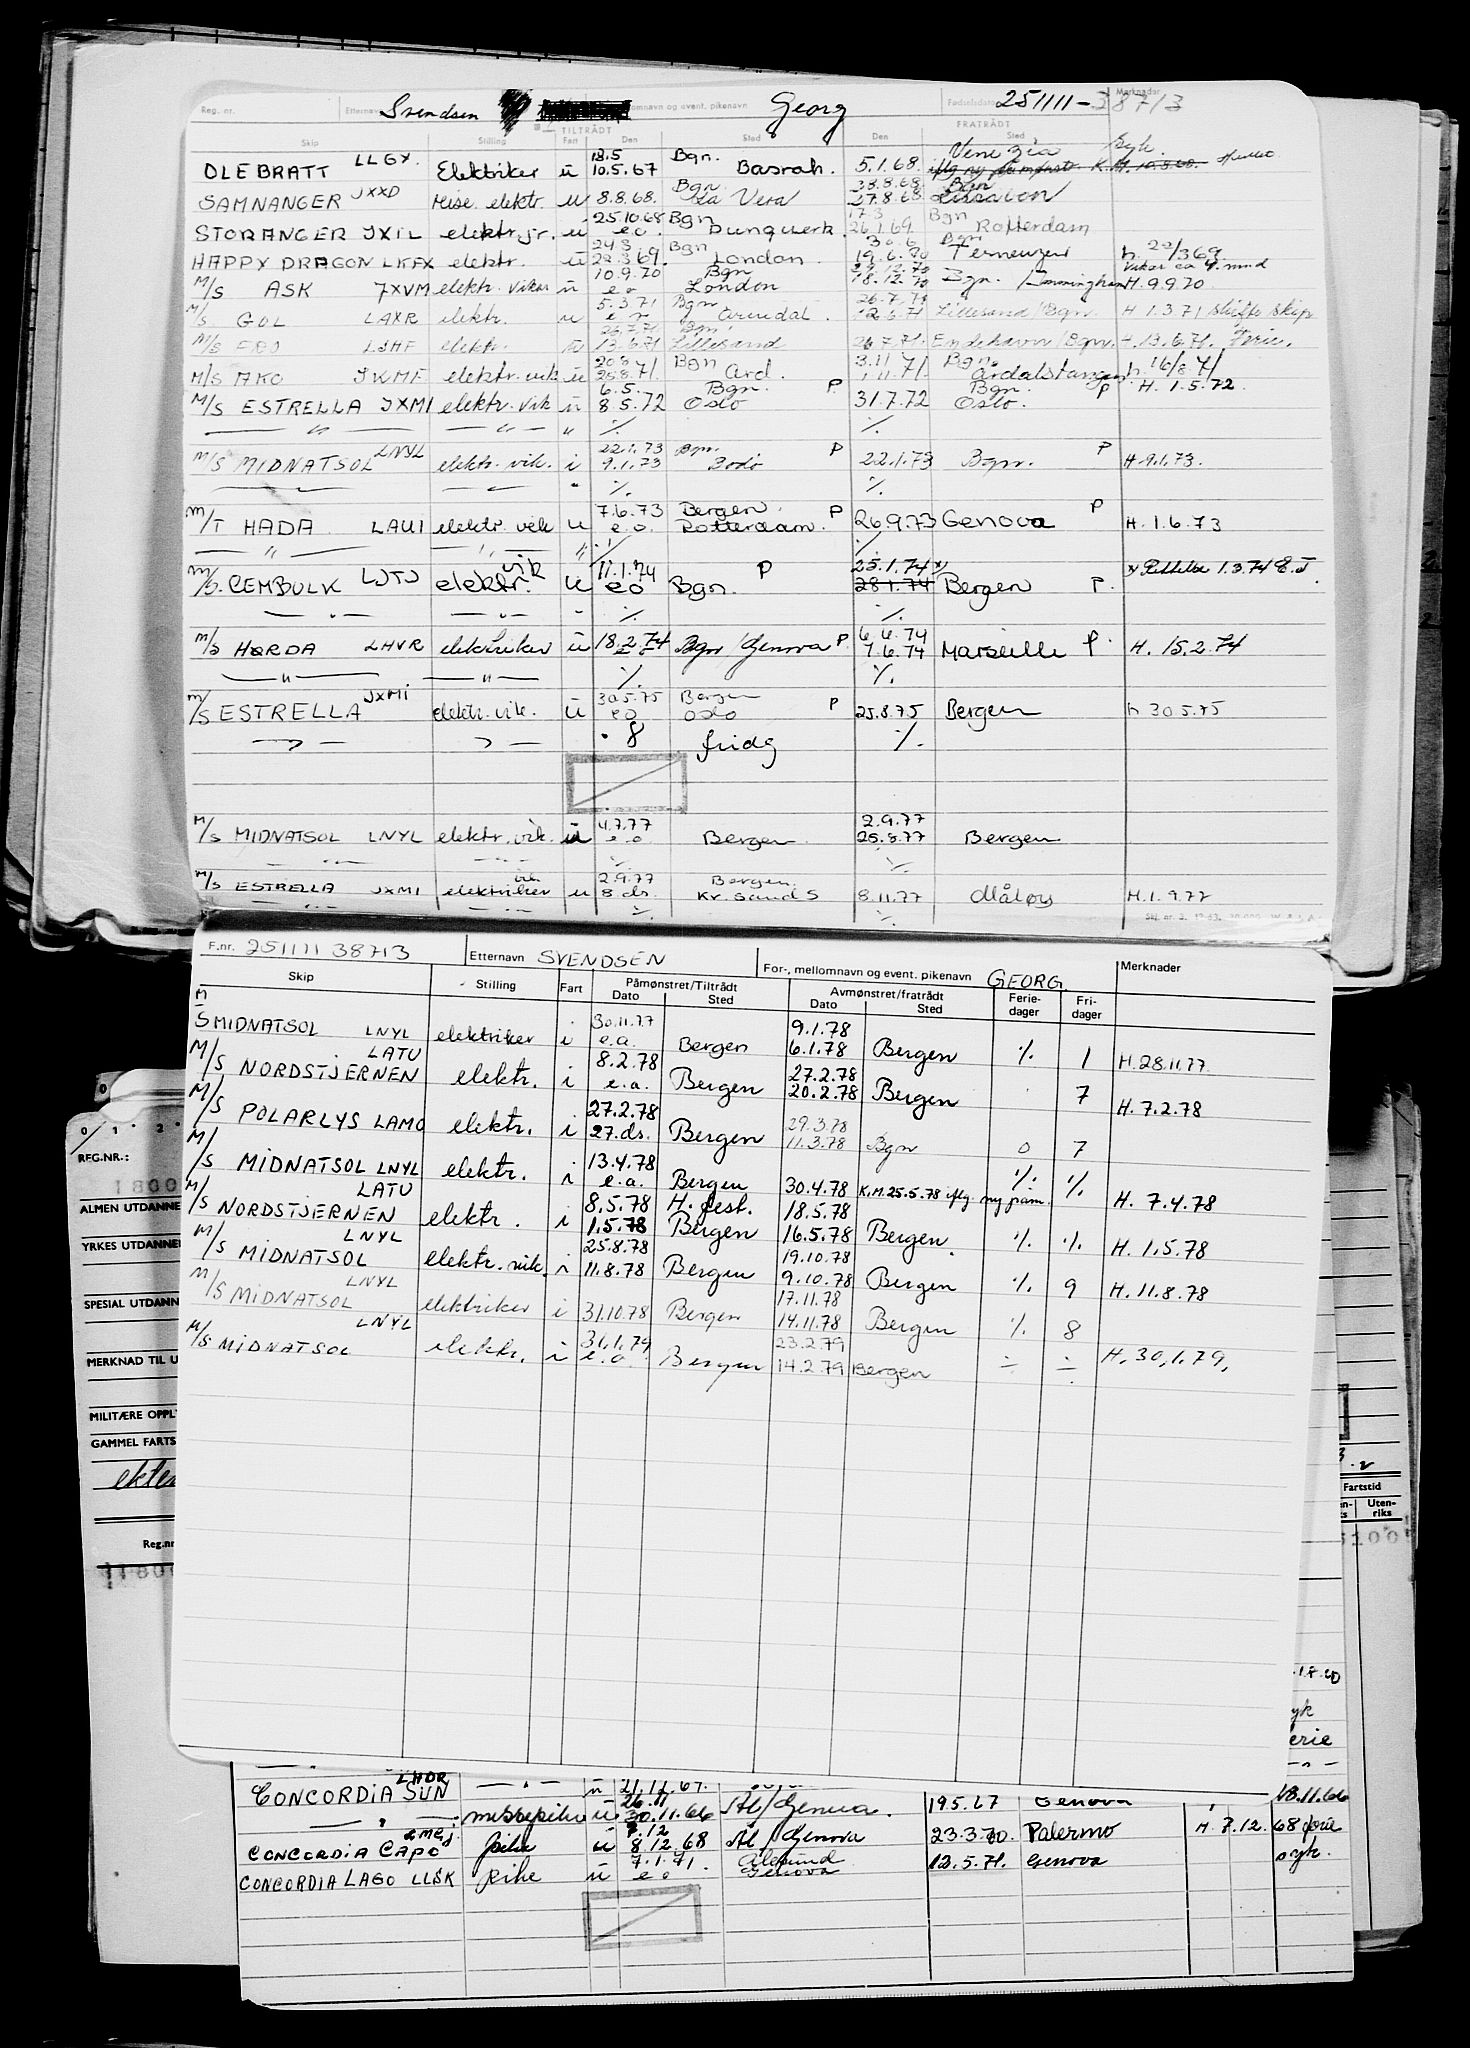 Reg. nr. Etternavn Svendsen Georg Fødselsdato 251111-38713 Merknader
TILTRÅDT FRATRÅDT
Skip Stilling Fart Den Sted Den Sted
OLE BRATT LLGX Elektriker u 18.5 10.5.67 Bgn. Basrah. 5.1.68. Venezia Syk
SAMNANGER JXXD reise. elektr. u 8.8.68. Bgn La Vera 28.8.68 27.8.68 Bgn Lissabon
STORANGER JXIL elektr.jr. u 25.10.68 e.o. Bgn Dunquerk. 17.3 26.1.69. Bgn Rotterdam
HAPPY DRAGON LKFX elektr. u 24.3 22.3.69. Bgn London. 30.6 19.6.70 Bgn Terneuzen h. 22/3 69.
M/S ASK JXVM elektr. vikar u 10.9.70 e.o Bgn London 18.12.70 Bgn. /Immingham Vikar ca 4 mnd H. 9.9.70
M/S GOL LAXR elektr. u 5.3.71 Bgn Arendal. 26.7.71 12.6.71 Lillesand/Bgn. H 1.3.71 skifte skip
M/S LJHF elektr. u 26.7.71 13.6.71 Bgn. Lillesand 26.7.71. /Bgn. H. 13.6.71. Ferie.
M/S AKO JKMF elektr. vik u 20.8 25.8.71. Bgn Ard. 3.11 1.11.71. Bgn. Årdalstangen h. 16/8 71
M/S ESTRELLA JXMI elektr. vik u 6.5. 8.5.72 Bgn. Oslo P 31.7.72 Bgn. Oslo. P H. 1.5.72.
— " — — " — " ·/. ·/.
M/S MIDNATSOL LNYL elektr. vik. i 22.1.73 9.1.73 Bgn. Bodö P 22.1.73 Bgn. P H. 9.1.73.
M/T HADA LAUI elektr. vik u 7.6.73 e.o. Bergen. Rotterdam. P 26.9.73 Genova P H. 1.6.73
M/S. CEMBULK LJTJ elektr. vik u 11.1.74 e o Bgn. P 25.1.74 x) 28.1.74 Bergen P. 1.3.74
— " — — " — ·/. ·/.
M/S HORDA LHVR elektriker u 18.2.74 Bgn /Genova P. 6.6.74 7.6.74 Marseille P. H. 15.2.74
— " — — " — ·/. ·/.
M/S ESTRELLA JXMI elektr. vik. u 30.5.75 e o Bergen Oslo P 25.8.75 Bergen h 30.5.75
8 fridg ·/.
M/S MIDNATSOL LNYL elektr. vik. u 4.7.77 e.o. Bergen. 2.9.77 25.8.77 Bergen
M/S ESTRELLA JXMI elektriker vik u 2.9.77 8.ds. Bergen. Kr. sand S 8.11.77 Måløy H. 1.9.77
F.nr. 251111 38713 Etternavn SVENDSEN For-, mellomnavn og event. pikenavn GEORG Merknader
Skip Stilling Fart Påmønstret/Tiltrådt Dato Sted Avmønstret/fratrådt Dato Sted Ferie-dager Fri-dager
M/S MIDNATSOL LNYL elektriker i 30.11.77 e.a. Bergen 9.1.78 6.1.78 Bergen ·/. 1 H. 28.11.77
M/S NORDSTJERNEN LATU elektr. i 8.2.78 e.a. Bergen 27.2.78 20.2.78 Bergen 7 H. 7.2.78
M/S POLARLYS LAMO elektr. i 27.2.78 27.ds. Bergen 29.3.78 11.3.78 Bgn 0 7
M/S MIDNATSOL LNYL elektr. i 13.4.78 e.a. Bergen 30.4.78 K.M. 25.5.78 iflg. ny påm. ·/. ·/. H. 7.4.78
M/S NORDSTJERNEN LATU elektr. i 8.5.78 1.5.78 H.fest. Bergen 18.5.78 16.5.78 Bergen ·/. ·/. H. 1.5.78
M/S MIDNATSOL LNYL elektr. vik. i 25.8.78 11.8.78 Bergen 19.10.78 9.10.78 Bergen ·/. 9 H. 11.8.78
M/S MIDNATSOL LNYL elektriker i 31.10.78 Bergen 17.11.78 14.11.78 Bergen ·/. 8
M/S MIDNATSOL LNYL elektr. i 31.1.79 e.a. Bergen 23.2.79 14.2.79 Bergen ÷ ÷ H. 30.1.79.
0 1 2
REG.NR.:
1800
ALMEN UTDANNE
YRKES UTDANNE
SPESIAL UTDANN
MERKNAD TIL U
MILITÆRE OPPL
GAMMEL FARTS
Reg.nr
Fartstid
Uten-riks
yk
erie
CONCORDIA SUN LHDR — " — u 21.12.67.
— " — messepike u 26.11 30.11.66 Ål/Genua. 19.5.67 Genova 18.11.66
CONCORDIA CAPO pike u 7.12 8.12.68 Ål/Genova 23.3.70. Palermo H. 7.12.68 ferie
CONCORDIA LAGO LLSK pike u 7.1.71. e o Ålesund Genova 12.5.71. Genova syk.